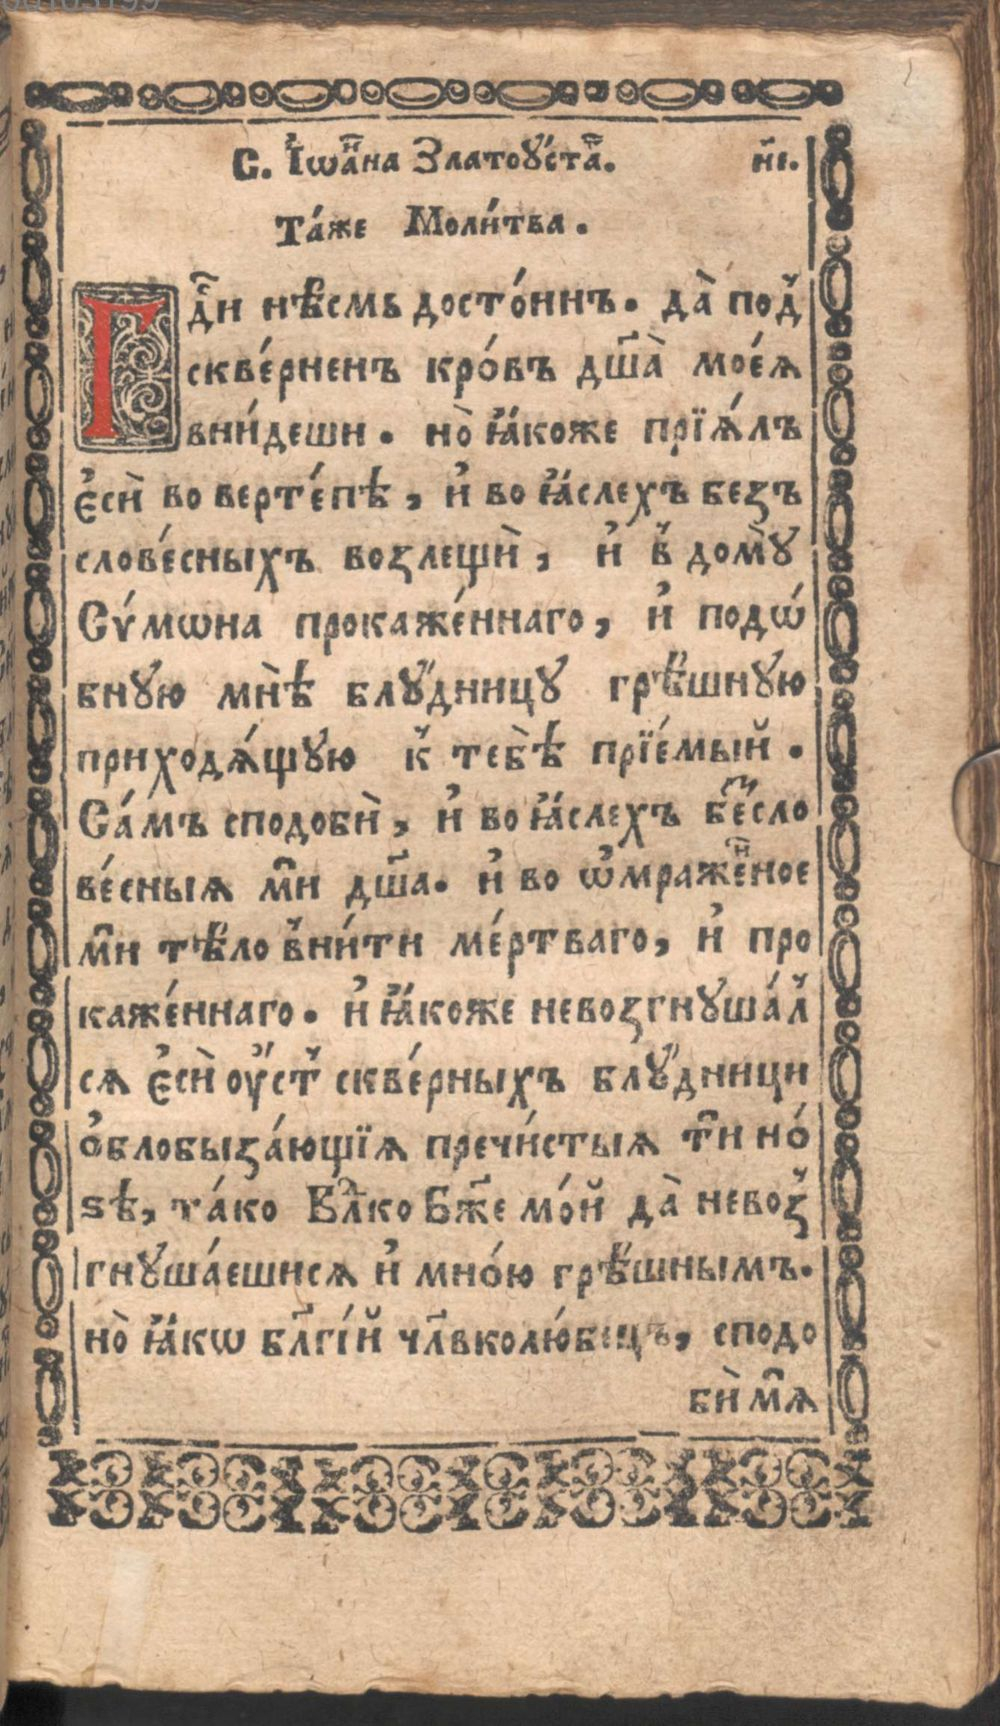 С. І҆ѡа́нна Златоꙋ́стаг҃. н҃е.
Та́же Моли́тва.
Гд҇и нѣ́смь досто́инъ. да̀ под̾
скве́рненъ кро́въ дш҃а̀ мое́ѧ
вни́деши. но̀ ꙗ҆́коже прїѧ́лъ
є҆сѝ во верте́пѣ, и҆ во ꙗ҆́слехъ безъ
слове́сныхъ возлещѝ, и҆ в̾ дом̀ꙋ
Сѵ́мѡна прокаже́ннаго, и҆ подѡ́
бнꙋю мн̀ѣ блꙋ́дницꙋ грѣ́шнꙋю
приходѧ́щꙋю к̾ теб̀ѣ прїе́мый.
Са́мъ сподобѝ, и҆ во ꙗ҆́слехъ бе́зсло
ве́сныѧ мⷪ҇и дш҃а. и҆ во ѡ҆мраже́нное
мⷪ҇и тѣ́ло в̾ни́ти ме́ртваго, и҆ про
каже́ннаго. и҆ ꙗ҆́коже невозгнꙋша́л̾
сѧ є҆сѝ ᲂу҆́ст̾ скве́рныхъ блꙋ́дници
ѻ҆блобыза́ющїѧ пречи́стыѧ тⷪ҇и но́
ѕѣ, та́ко Влⷣко Бж҃е мо́й да̀ невоз̾
гнꙋша́ешисѧ и҆ мно́ю грѣ́шнымъ.
но̀ ꙗ҆́кѡ бл҃гі́й чл҃вколю́бецъ, сподо
бѝ мѧ̀